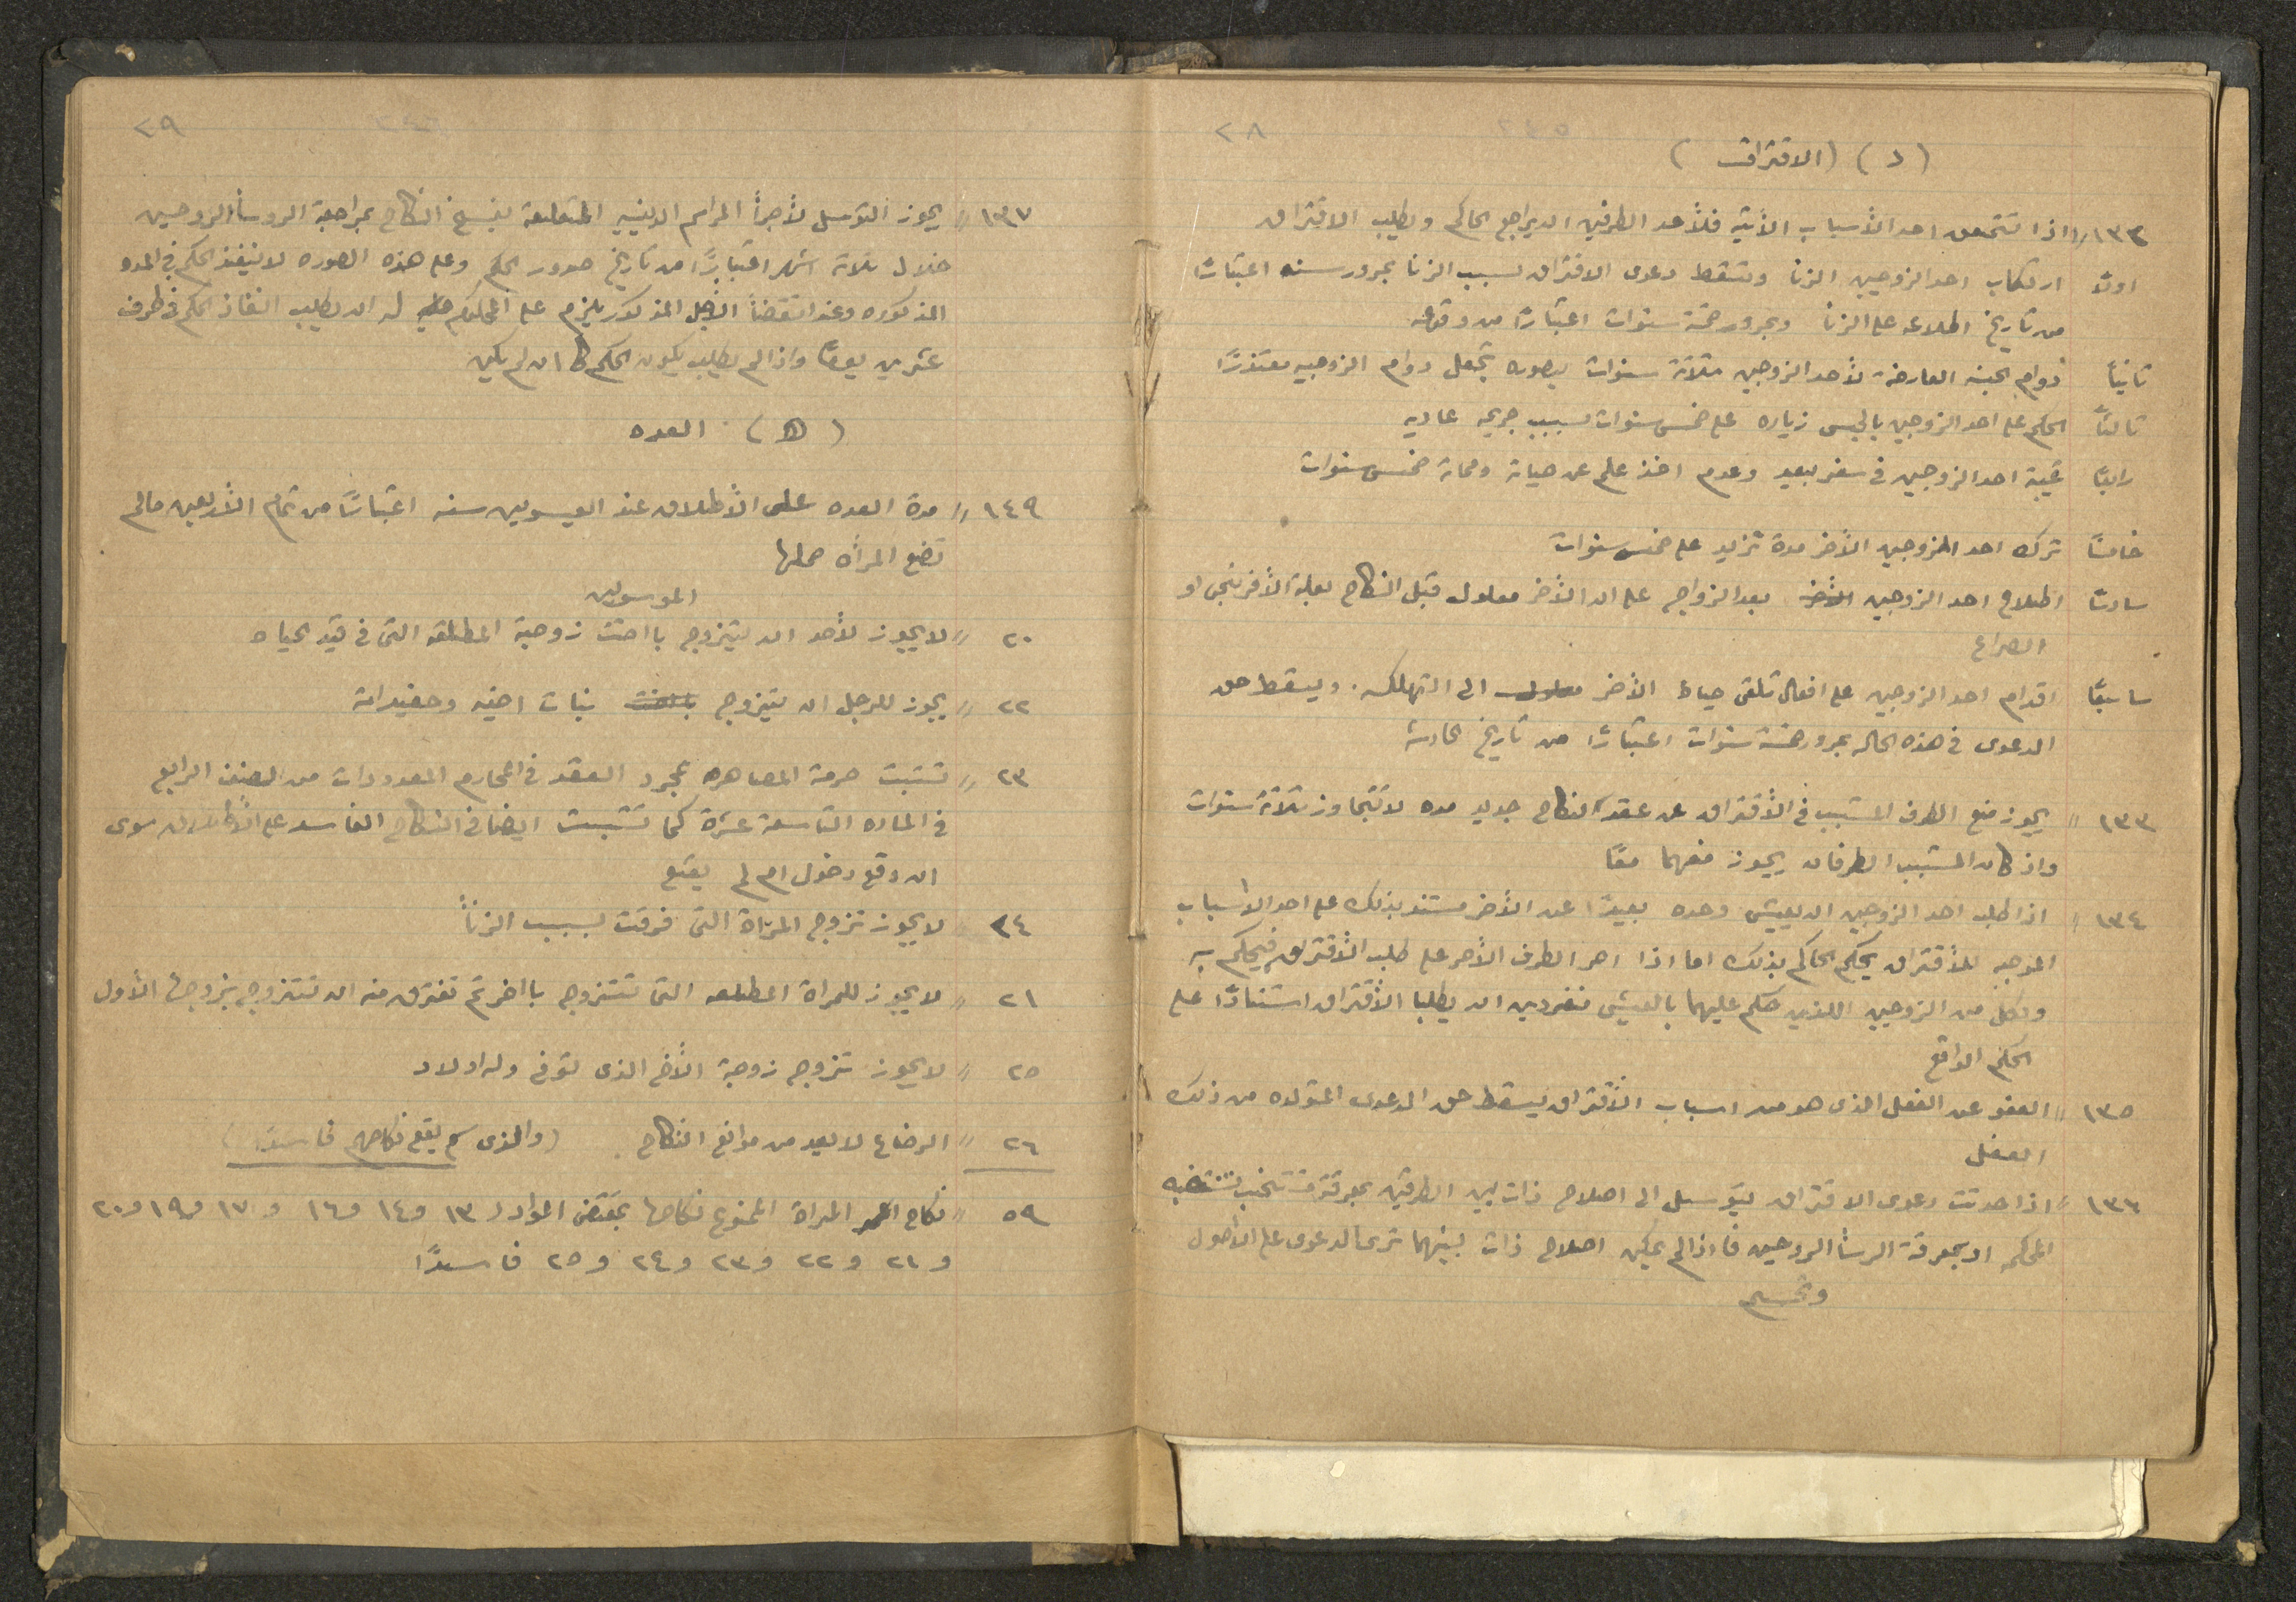 ٢٨
(د) (الافتراق)
١٣٢ // اذا تتحقق احد الأسباب الآتية فلأحد الطرفين ان يراجع الحاكم ويطلب الافتراق
اولاً ارتكاب احد الزوجين الزنا وتسقط دعوى الافتراق بسبب الزنا بمرور سنه اعتباراً
من تاريخ اطلاعه على الزنا وبمرور خمسة سنوات اعتباراً من وقوعه
ثانياً دوام الجنه العارضة لأحد الزوجين ثلاثة سنوات بصوره تجعل دوام الزوجيه متعذراً
ثالثاً الحكم على احد الزوجين بالحبس زياده على خمس سنوات بسبب جريمه عاديه
رابعاً غيبة احد الزوجين في سفر بعيد وعدم اخذ علم عن حياته ومماته خمس سنوات
خامساً ترك احد الزوجين الأخر مدة تزيد على خمس سنوات
سادساً اطلاع احد الزوجين الأخر بعد الزواج على ان الأخر معلول قبل النكاح بعلة الأفرنجي او
الصراع
سابعاً اقدام احد الزوجين على افعال تلقى حياة الأخر معلول الى التهلكه. ويسقط حق
الدعوى في هذه الحاله بمرور خمسة سنوات اعتباراً من تاريخ الحادثه
١٣٣ // يجوز منع الطرف المتسبب في الأفتراق عن عقد النكاح جديد مده لا تتجاوز ثلاثة سنوات
واذ كان المتسبب الطرفان يجوز منعهما معاً
١٣٤ // اذا طلب احد الزوجين ان يعيش وحده بعيداً عن الأخر مستند بذلك على احد الاسباب
الموجبه للأفتراق يحكم الحاكم بذلك اما اذا اصر الطرف الأخر على طلب الأفتراق فيحكم به
ولكل من الزوجين اللذين حكم عليهما بالعيش منفردين ان يطلبا الأفتراق استناداً على
الحكم الواقع
١٣٥ // العفو عن الفعل الذي هو من اسباب الأفتراق يسقط حق الدعوى المتولده من ذلك
الفعل
١٣٦ // اذا حدثت دعوى الافتراق يتوسل الى اصلاح ذات بين الطرفين بمعرفة من تنتخبه
المحكمه او بمعرفة الرسأ الروحين فأذا لم يمكن اصلاح ذات بينهما ترى الدعوى على الأصول
وتحسم
٢٩
١٣٧ // يجوز التوسل لأجرأ المراسم الدينيه المتعلقة بفسخ النكاح بمراجعة الروسأ الروحين
خلال ثلاثة اشهر اعتباراً من تاريخ صدور الحكم وعلى هذه الصوره لا ينفذ الحكم في المده
المذكوره وعند انقضأ الأجل المذكور يلزم على المحكوم له ان يطلب انفاذ الحكم في ظرف
عشرين يوماً واذا لم يطلب يكون الحكم كا ان لم يكن
(ه) العده
١٤٩ // مدة العده على الأطلاق عند العيسوين سنه اعتباراً من تمام الأربعين مالم
تضع المرأه حملها
الموسوين
٢٠ // لا يجوز لأحد ان يتزوج بااخت زوجة المطلقه التي في قيد الحياه
٢٢ // يجوز للرجل ان يتزوج باخت بنات اخيه وحفيداته
٢٣ // تتثبت حرمة المصاهره بمجرد العقد في المحارم المعدودات من الصنف الرابع
في الماده التاسعة عشرة كما تثبت ايضا في النكاح الفاسد على الأطلاق سوى
ان وقع دخول ام لم يقع
٢٤ لا يجوز تزوج المرأة التي فرقت بسبب الزنأ
٢١ // لا يجوز للمرأة المطلقه التي تتزوج بااخر ثم تفترق منه ان تتزوج بزوجها الأول
٢٥ // لا يجوز تزوج زوجة الأخ الذي توفي وله اولاد
٢٦ // الرضاع لا يعد من موانع النكاح (والذي يقع نكاحهم فاسداً)
٥٩ // نكاح المرأة الممنوع نكاحها بمقتضى المواد ١٣ و١٤ و١٦ و١٧ و١٩ و٢٠
و٢١ و٢٢ و٢٣ و٢٤ و٢٥ فاسداً